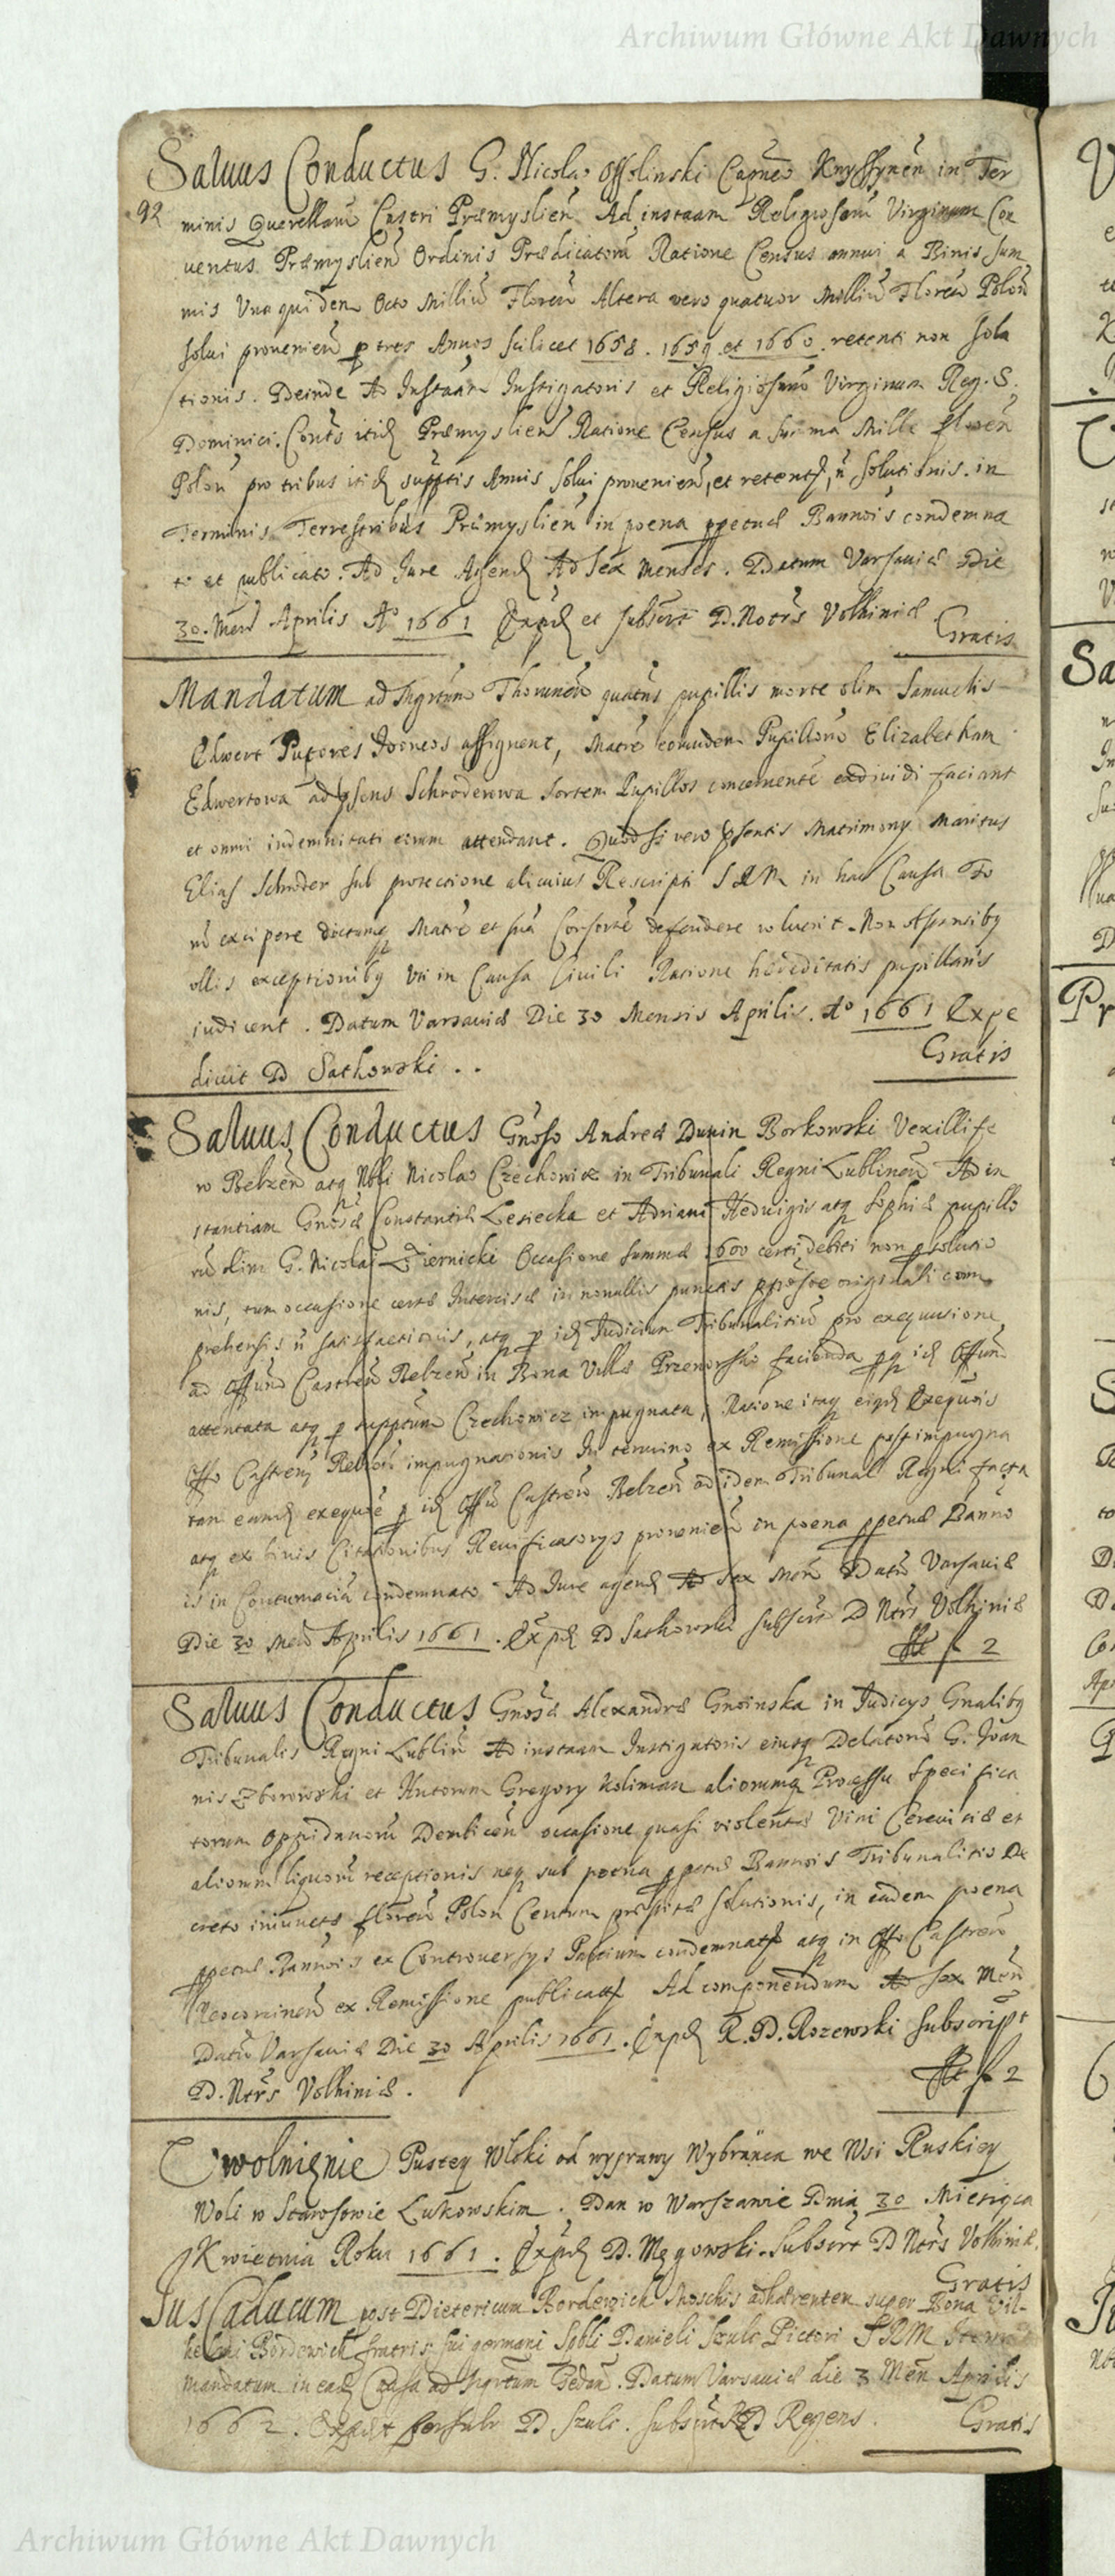 Archiwum Główne Akt Dawnych
Saluus Conductus G. Nicolao Ossolinski Capneo Knyssynen in Ter
92
minis Querellarum Castri Præmyslien Ad instaam Religiosarum Virginum Con
uentus Præmyslien Ordinis Prædicatorum Ratione Census annui a Binis sum
mis Una quidem Octo Milliu Florenu Altera vero quatuor Milliu Florenu Polon
solui prouenien p tres Annos scilicet 1658. 1659 et 1660. retenti non solu
tionis. Deinde Ad Instaam Instigatoris et Religiosarum Virginum Reg. S.
Dominici. Conts itid Præmyslien Ratione Census a summa Mille floren
Polon pro tribus itid supptis Annis solui prouenien, et retent, n solutionis. in
Terminis Terrestribus Præmyslien in poena ppetuæ Bannois condemna
to et publicato. Ad Jure Agend Ad sex menses. Datum Varsauiæ Die
30. Mens Aprilis Ao 1661 Expd et subscrt D. Notrs Volhiniæ
Gratis
Mandatum ad Mgrtum Thorunen quatus pupillis morte olim Samuelis
Edwert Tutores Idoneos assignent, Matre eorundem Pupilloru Elizabetham
Edwertowa ad psens Schroderowa sortem Pupillos concernente exdiuidi faciant
et omni indemnitati eorum attendant. Quodsi vero psentis Matrimony Maritus
Elias Schroder sub protectione alicuius Rescripti SRM in hac Causa Fo
ru excipere dictamq Matre et sua Consorte defendere voluerit. Non Obstantiby
ollis exceptioniby uti in Causa Ciuili Ratione hæreditatis pupillaris
iudicent. Datum Varsauiæ Die 30 Mensis Aprilis. Ao 1661 Expe
diuit D Sathowski . .
Gratis
Saluus Conductus Gnoso Andreæ Dunin Borkowski Vexillife
ro Belzen atq Nbli Nicolao Czechowicz in Tribunali Regni Lublinen Ad in
stantiam Gnosæ Constantiæ Lesiecka et Adriani Heduigis atq Sophiæ pupillo
ru olim G. Nicolai Ziernicki Occasione summæ 1600 certi debiti non psolutio
nis, tum occasione certæ Intercisæ in nonullis punctis originali com
prehensis n satisfactionis, atq p id Judicium Tribunalitiu pro exequutione
ad Offum Castren Belzen in Bona Villæ Przeworsko facienda id Offum
attentata atq p supptum Czechowicz impugnata, Ratione itaq eiusd Exequtis
Offo Castren Belzen impugnationis In termino ex Remissione post impugna
tam eand exequtoe p id Offu Castren Belzen ad idem Tribunal Regni facta
atq ex binis Citationibus Reuificatorys prouenien in poena ppetuæ Banno
is in Contumacia condemnato Ad Jure agend Ad sex Men Datu Varsauiæ
Die 30 Mens Aprilis 1661. Expd D Sathowski subscr D Ntrs Volhiniæ
f 2
Saluus Conductus Gnosæ Alexandræ Gnoinska in Judicys Gnaliby
Tribunalis Regni Lublin Ad instaam Instigatoris eiusq Delatoru G. Joan
nis Zborowski et Actorum Gregory Koliman aliorumq Processu specifica
torum Oppidanoru Dembicen occasione quasi violentæ Vini Ceruisiæ et
aliorum liquoru receptionis neq sub poena ppetuæ Bannois Tribunalitio De
creto iniunctæ floren Polon Centum solutionis, in eadem poena
ppetuæ Bannois ex Controuersys Partium condemnatæ atq in Offo Castren
Neocorcinen ex Remissione publicatæ Ad componendum Ad sex Men
Datu Varsauiæ Die 30 Aprilis 1661. Expd R. D. Rozewski subscript
D. Ntrs Volhiniæ.
f 2
Uwolnięnie Pustey Wloki od wyprawy Wybrańca we Wsi Ruskiey
Woli w Starostwie Lukowskim. Dan w Warszawie Dnia 30 Miesiąca
Kwietnia Roku 1661. Expd D. Męgowski. Subscrt D Ntrs Volhiniæ.
Gratis
Jus Caducum post Dietericum Bordewich Moschis adhærentem super Bona Vil-
helmi Bordewich fratris sui germani Spbli Danieli Szulc Pictori SRM
mandatum in ead Causa ad Mgrtum Gedan. Datum Varsauiæ die 3 Men Aprilis
1662. D Szulc. subscrt RD Regens.
Gratis
Archiwum Główne Akt Dawnych